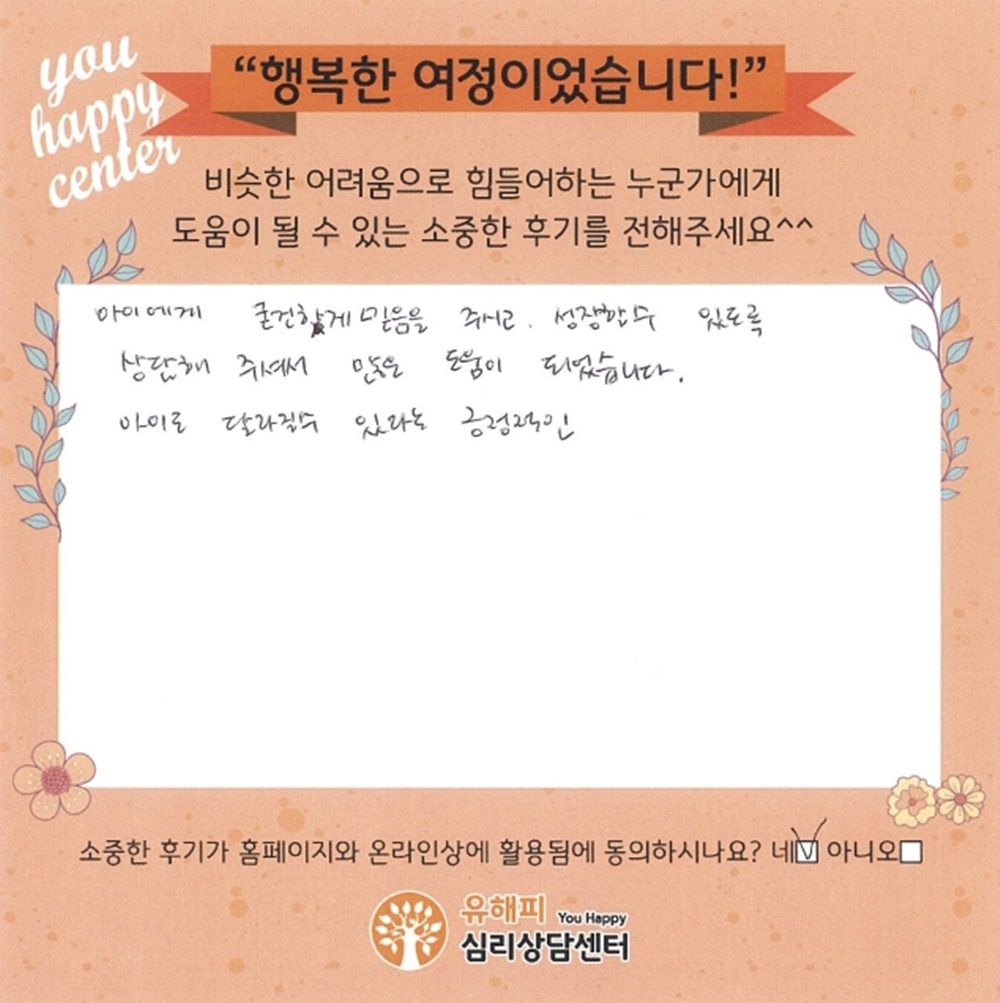 you
happy
center
“행복한 여정이었습니다!”
비슷한 어려움으로 힘들어하는 누군가에게
도움이 될 수 있는 소중한 후기를 전해주세요^^
아이에게 굳건하게 믿음을 주시고. 성장할수 있도록
상담해 주셔서 많은 도움이 되었습니다.
아이로 달라질수 있다는 긍정적인
소중한 후기가 홈페이지와 온라인상에 활용됨에 동의하시나요? 네 아니오
유해피 You Happy
심리상담센터